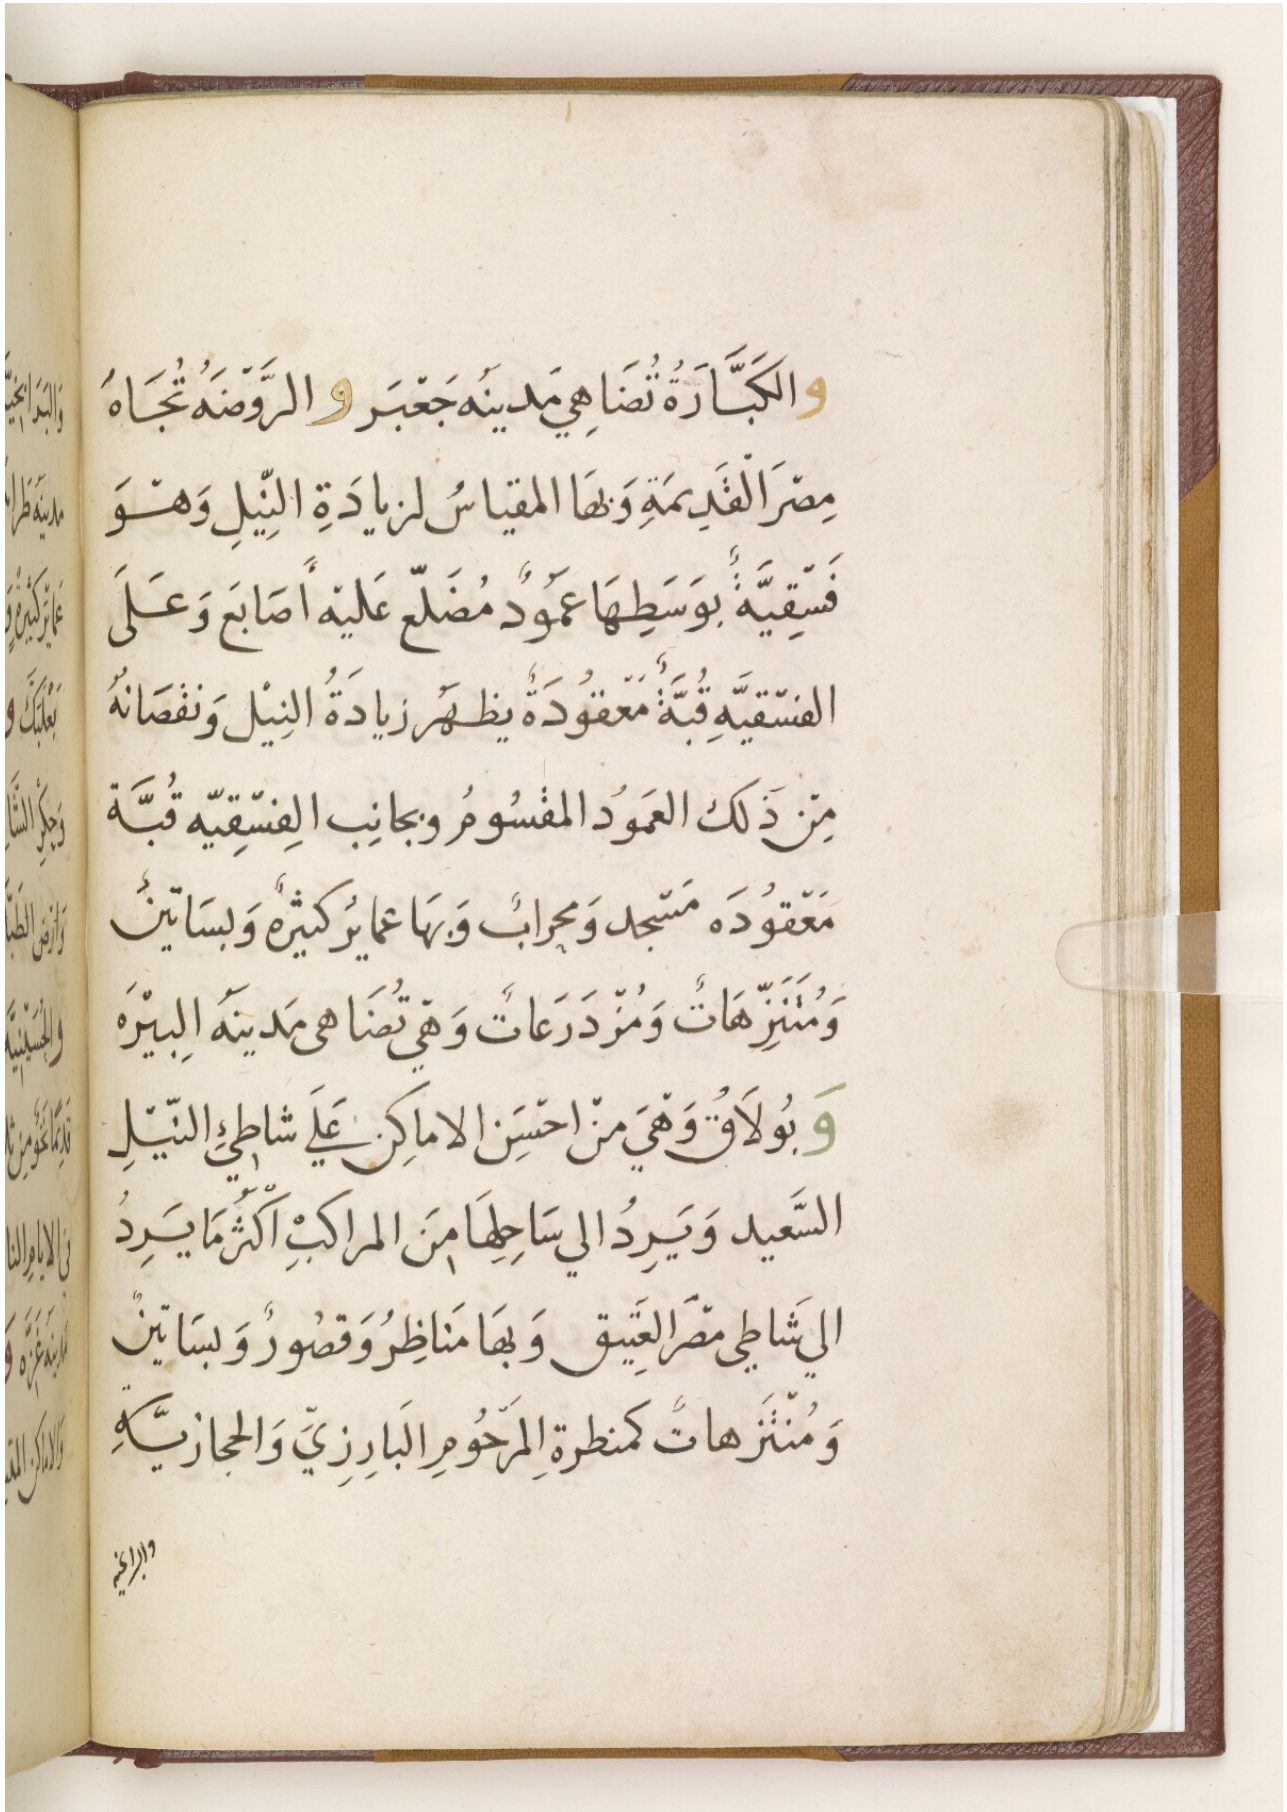 والكَبَّارَةُ تُضَاهِي مَدينَه جَعْبَر والرَّوْضَهُ تُجَاهَ
مِصْرَ القَدِيمَةِ وَبهَا المقياسُ لزيادَةِ النِّيلِ وَهْوَ
فَسْقِيَّةٌ بِوَسَطِهَا عَمُودٌ مُضَلّع عَليْه أصَابَع وَعَلَى
الفسْقيَّهِ قُبَّةٌ مَعْقُودَةٌ يظهَر زيادَةُ النِيْل وَنقْصَانهُ
مِنْ ذَلك العَمُودِ المقْسُومُ وبجانِب الفِسْقِيّه قُبَّة
مَعْقُودَه مَسْجد وَمحرابٌ وَبهَا عمايرُ كثيرهٌ وَبسَاتينٌ
وَمُتَنَزِّهَاتٌ وَمُزْدَرَعَاتٌ وَهْيَ تُضَاهى مَدينَهُ البِيْرَه
وَبُولَاقُ وَهْيَ منْ احْسَنِ الاماكِن عَلَي شاطِئِ النّيْلِ
السَّعيد وَيَرِدُ الي سَاحِلِهَا مِنَ المراكبِ أكْثَرُ مَا يَرِدُ
الي شَاطِي مصْرَ العَتِيق وَبهَا مَناظِرُ وَقصُورٌ وَبسَاتينٌ
وَمُنْتَزهاتٌ كمنظرةِ المَرْحُومِ البَارِزِيّ وَالحجازيَّةِ